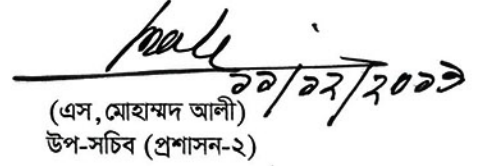 ১১/১২/২০১৩
(এস, মোহাম্মদ আলী)
উপ-সচিব (প্রশাসন-২)